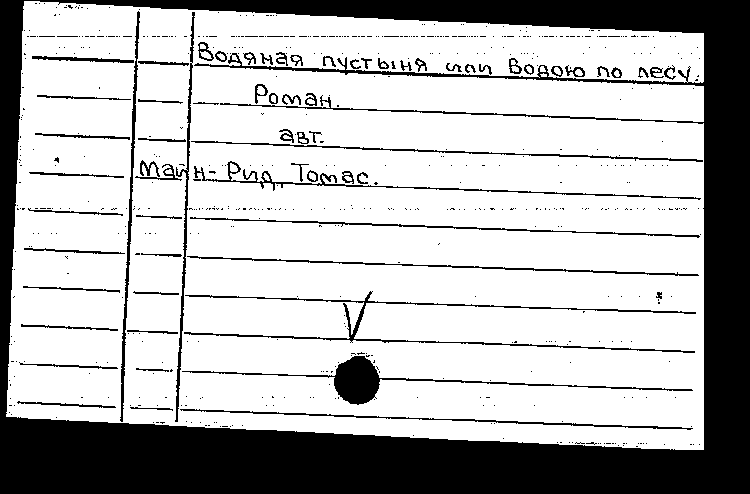 Водяная пустыня или Водою по лесу.
Роман.
авт.
Майн-Рид, Томас.